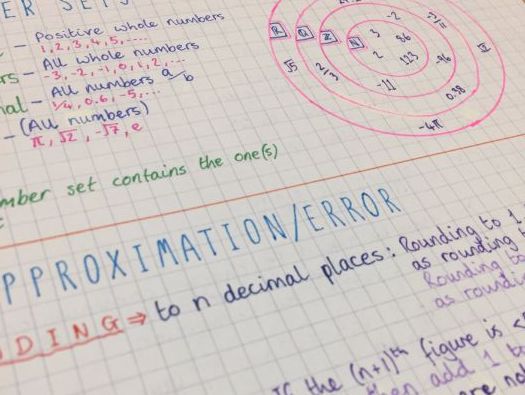 ER SETS
- Positive whole numbers
1, 2, 3, 4, 5, ....
rs - All whole numbers
-3, -2, -1, 0, 1, 2, ...
nal - All numbers a/b
1/4, 0.6, -5, ....
- (All numbers)
π, √2, -√7, e
R Q Z N
3 -2
86
2 123 -96
-11
√5 2/3
0.98
-4π
mber set contains the one(s)
PPROXIMATION/ERROR
DING ⇒ to n decimal places: Rounding to 1
as rounding
Rounding to
as roundi
If the (n+1)th figure is <
then add 1 t
are not